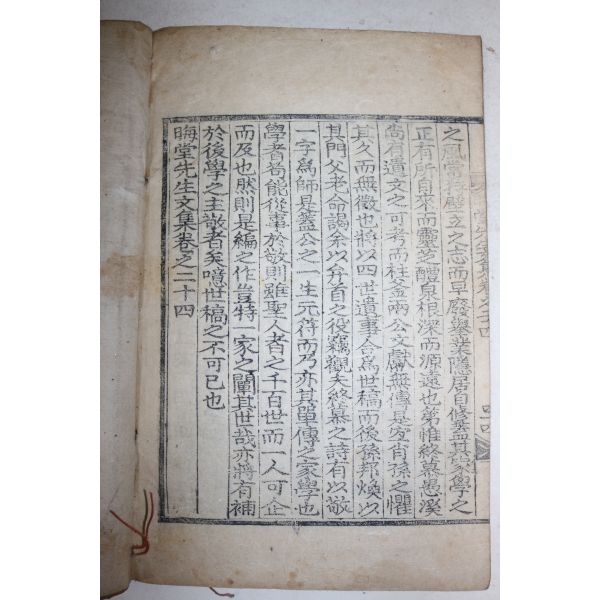 之風常存壁立之志而早廢擧業隱居自修蓋其家學之
正有所自來而靈芝醴泉根深而源遠也第惟終慕愚溪
尙有遺文之可考而柱釜兩公文獻無傳是宜有孫之懼
其久而無徵也將以四世遺事合爲世稿而後孫邦煥以
其門父老命謁余以弁首之役竊觀夫終慕之詩有以敬
一字爲師是蓋公之一生元符而乃亦其單傳之家學也
學者苟能從事於敬則雖聖人者之千百世而一人可企
而及也然則是編之作豈特一家之闡其世哉亦將有補
於後學之主敬者矣噫世稿之不可已也
晦堂先生文集卷之二十四